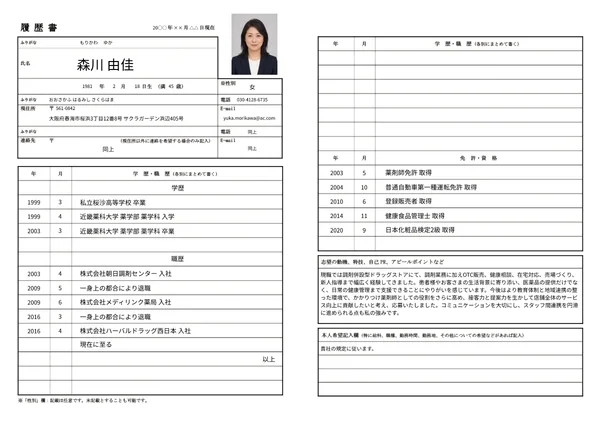 履 歴 書
20○○ 年 ×× 月 △△ 日現在
ふりがな もりかわ ゆか
氏名 森川 由佳
1981 年 2 月 18 日生 (満 45 歳)
※性別
女
ふりがな おおさかふ はるみし さくらはま
電話 050-4128-6735
現住所 〒 561-0842
E-mail
大阪府春海市桜浜3丁目12番8号 サクラガーデン浜辺405号
yuka.morikawa@ac.com
ふりがな
電話 同上
連絡先 〒 (現住所以外に連絡を希望する場合のみ記入)
E-mail
同上
同上
年 月 学 歴・職 歴 (各別にまとめて書く)
学歴
1999 3 私立桜沙高等学校 卒業
1999 4 近畿薬科大学 薬学部 薬学科 入学
2003 3 近畿薬科大学 薬学部 薬学科 卒業
職歴
2003 4 株式会社朝日調剤センター 入社
2009 5 一身上の都合により退職
2009 6 株式会社メディリンク薬局 入社
2016 3 一身上の都合により退職
2016 4 株式会社ハーバルドラッグ西日本 入社
現在に至る
以上
※「性別」欄:記載は任意です。未記載とすることも可能です。
年 月 学 歴・職 歴 (各別にまとめて書く)
年 月 免 許・資 格
2003 5 薬剤師免許 取得
2004 10 普通自動車第一種運転免許 取得
2010 6 登録販売者 取得
2014 11 健康食品管理士 取得
2020 9 日本化粧品検定2級 取得
志望の動機、特技、自己PR、アピールポイントなど
現職では調剤併設型ドラッグストアにて、調剤業務に加えOTC販売、健康相談、在宅対応、売場づくり、
新人指導まで幅広く経験してきました。患者様やお客さまの生活背景に寄り添い、医薬品の提供だけでな
く、日常の健康管理まで支援できることにやりがいを感じています。今後はより教育体制と地域連携の整
った環境で、かかりつけ薬剤師としての役割をさらに高め、接客力と提案力を生かして店舗全体のサービ
ス向上に貢献したいと考え、応募いたしました。コミュニケーションを大切にし、スタッフ間連携を円滑
に進められる点も私の強みです。
本人希望記入欄 (特に給料、職種、勤務時間、勤務地、その他についての希望などがあれば記入)
貴社の規定に従います。